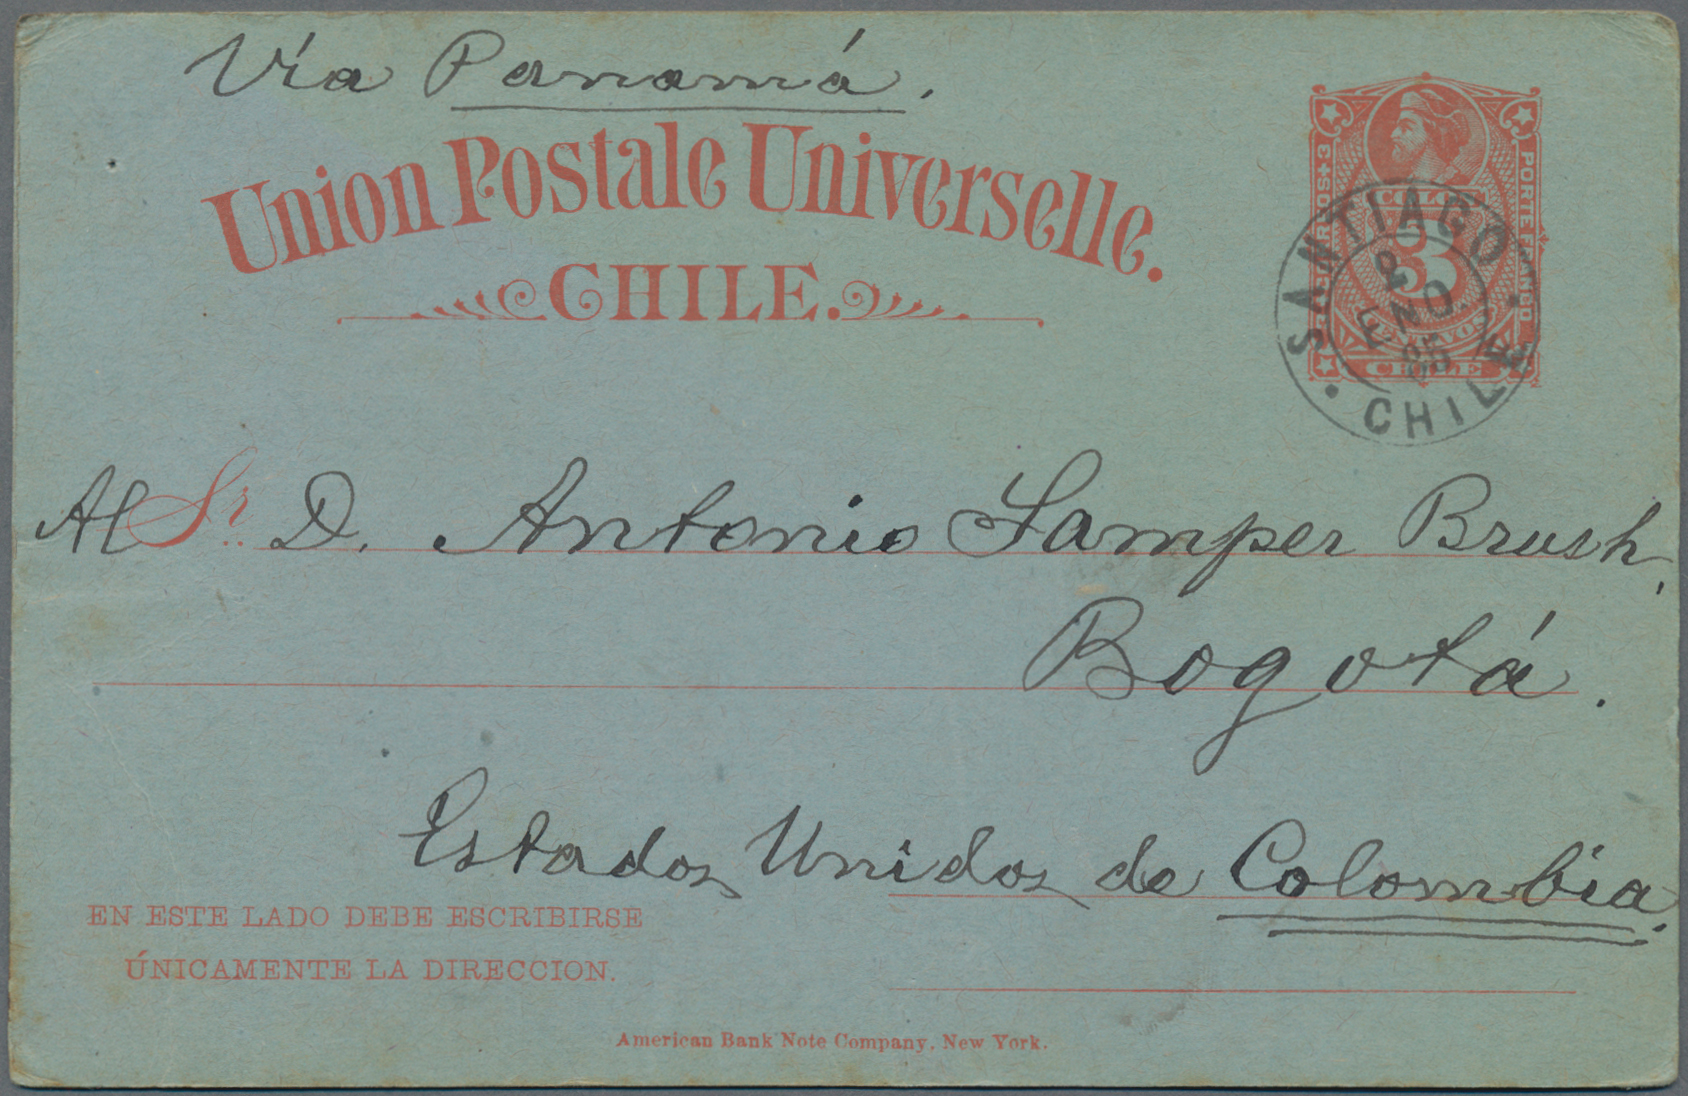 Vía Panamá.
Union Postale Universelle.
CHILE.
COLON
3
CENTAVOS
CHILE
SANTIAGO
ENO
CHILE
Al Sr. D. Antonio Samper Brush,
Bogotá.
Estados Unidos de Colombia.
EN ESTE LADO DEBE ESCRIBIRSE
ÚNICAMENTE LA DIRECCION.
American Bank Note Company, New York.